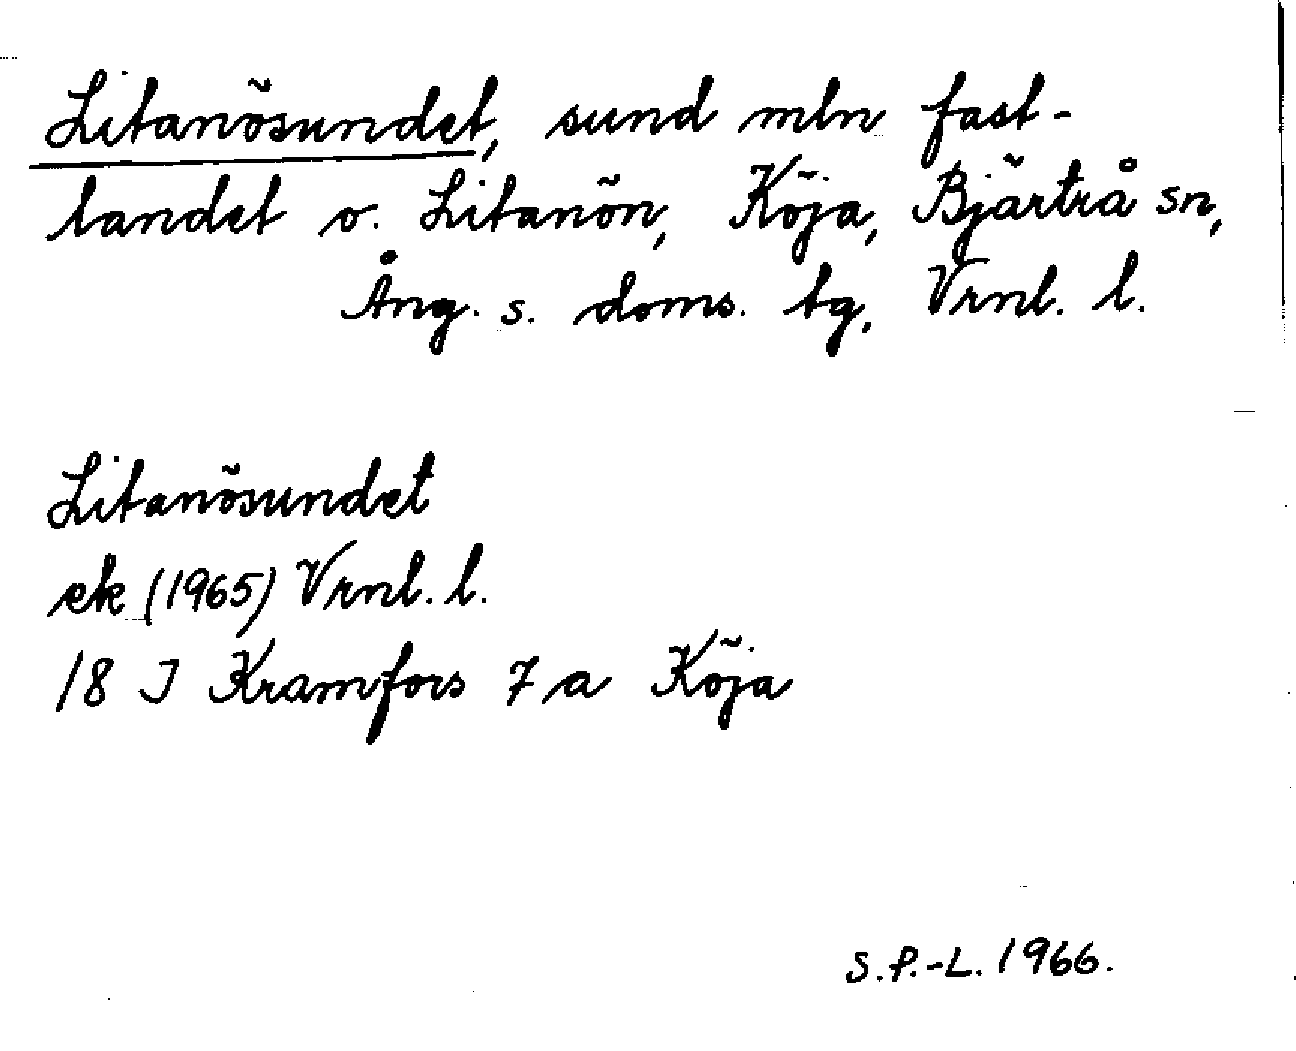 Litanösundet, sund mln fast-
landet o. Litanön, Köja, Bjärtrå sn,
Ång. s. doms. tg, Vrnl. l.
Litanösundet
ek (1965) Vrnl. l.
18 J Kramfors 7 a Köja
S.P.-L. 1966.